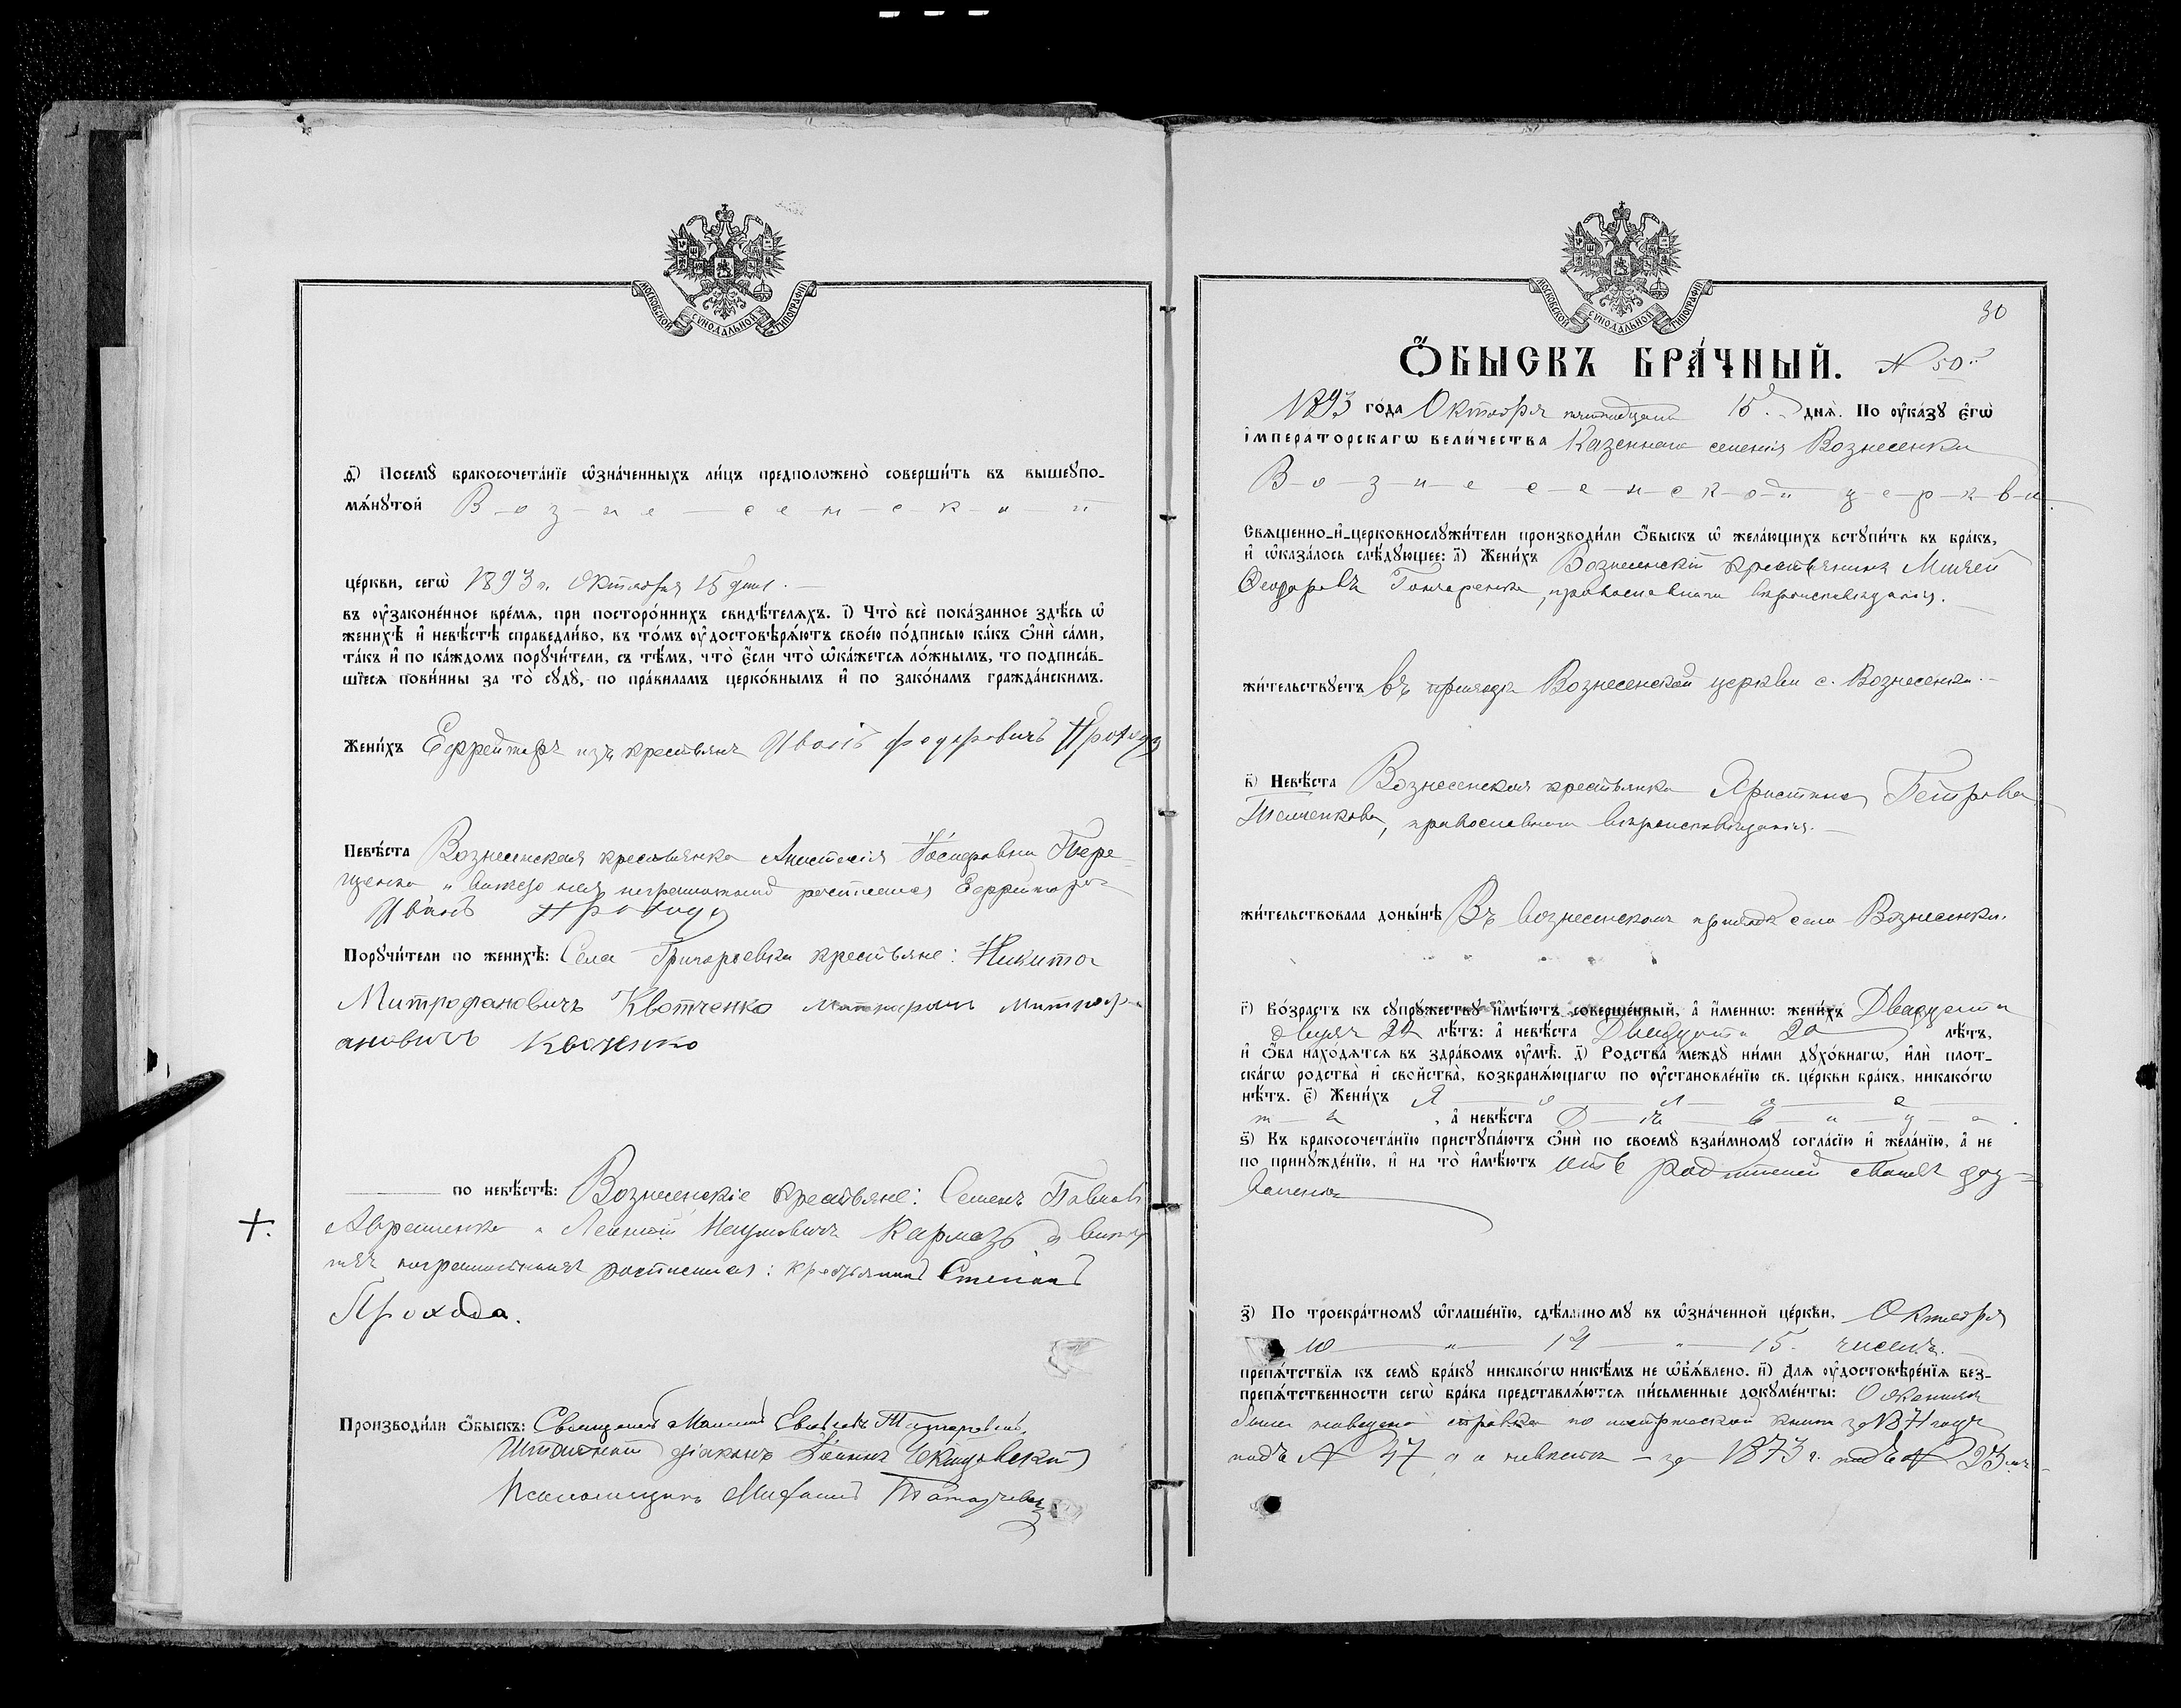 МОСКОВСКОЙ СѴНОДАЛЬНОЙ ТИПОГРАФІИ
д҃) Посемꙋ̀ бракосочета́нїе ѡ҆зна́ченныхъ ли́цъ предположено̀ соверши́ть въ вышеꙋпо-
мѧ́нꙋтой В-о-з-н-е-с-е-н-с-к-о-й
це́ркви, сегѡ̀ 1893 г. Октября 15 дня.
въ ᲂу҆зако́ненное вре́мѧ, при посторо́ннихъ свидѣ́телѧхъ. і҃) Что̀ всѐ пока́занное здѣ́сь ѡ҆
женихѣ̀ и҆ невѣ́стѣ справедли́во, въ то́мъ ᲂу҆достовѣрѧ́ютъ свое́ю по́дписью ка́къ ѻ҆нѝ са́ми,
та́къ и҆ по ка́ждомъ порꙋчи́тели, съ тѣ́мъ, что̀ є҆́сли что̀ ѡ҆ка́жетсѧ ло́жнымъ, то подписа́в-
шїесѧ пови́нны за то̀ сꙋдꙋ̀, по пра́виламъ церко́внымъ и҆ по зако́намъ гражда́нскимъ.
Жени́хъ Ефрейторъ изъ крестьянъ Иванъ Федоровичъ Прохода
Невѣ́ста Вознесенская крестьянка Анастасія Іосифовна Тере-
щенко и вместо нея неграмотной росписался Ефрейторъ
Иванъ Прохода
Порꙋчи́тели по женихѣ̀: Села Григорьевки крестьяне: Никита
Митрофановичъ Квотченко Митрофан-
ановичъ
по невѣ́стѣ: Вознесенскіе крестьяне: Семенъ Павловъ
Авраменко и Наумовичъ Кармазь и вмѣсто
ихъ неграмотныхъ росписался: крестьянинъ Степанъ
Прохода.
Производи́ли ѻ҆́быскъ: Священникъ
Штатный діаконъ Іоаннъ
Псаломщикъ
МОСКОВСКОЙ СѴНОДАЛЬНОЙ ТИПОГРАФІИ
30
Ѻ҆́БЫСКЪ БРА́ЧНЫЙ. N 50
1893 го́да Октября пятнадцати 15 днѧ̀. По ᲂу҆ка́зꙋ є҆гѡ̀
і҆мпера́торскагѡ вели́чества Казеннаго селенія Вознесенки
В-о-з-н-е-с-е-н-с-к-о-й ц-е-р-к-в-и
Свѧщенно-и҆-церковнослꙋжи́тели производи́ли ѻ҆́быскъ ѡ҆ жела́ющихъ встꙋпи́ть въ бра́къ,
и҆ ѡ҆каза́лось слѣ́дꙋющее: а҃) Жени́хъ Вознесенскій крестьянинъ
Ѳеодоровъ Гончаренко, православнаго вѣроисповѣданія.
жи́тельствꙋетъ въ приходѣ Вознесенской церкви с. Вознесенки.
в҃) Невѣ́ста Вознесенская крестьянка Христина Петрова
православнаго вѣроисповѣданія.
жи́тельствовала доны́нѣ Въ вознесенскомъ приходѣ села Вознесенки.
г҃) Во́зрастъ къ сꙋпрꙋ́жествꙋ и҆мѣ́ютъ соверше́нный, а҆ и҆́менно: жени́хъ Двадцати
двухъ 22 лѣ́тъ: а҆ невѣ́ста Двадцати 20 лѣ́тъ,
и҆ ѻ҆́ба нахо́дѧтсѧ въ здра́вомъ ᲂу҆мѣ̀. д҃) Родства̀ междꙋ̀ ни́ми дꙋхо́внагѡ, и҆лѝ плот-
ска́гѡ родства̀ и҆ сво́йства̀, возбранѧ́ющагѡ по ᲂу҆становле́нїю св. це́ркви бра́къ, никако́гѡ
нѣ́тъ. є҃) Жени́хъ Х-о-л-о-с-
т-ъ, а҆ невѣ́ста Д-ѣ-в-и-ц-а.
ѕ҃) Къ бракосочета́нїю пристꙋпа́ютъ ѻ҆нѝ по своемꙋ̀ взаи́мномꙋ согла́сїю и҆ жела́нїю, а҆ не
по принꙋжде́нїю, и҆ на то̀ и҆мѣ́ютъ отъ родителей своихъ доз-
воленіе
з҃) По троекра́тномꙋ ѡ҆глаше́нїю, сдѣ́ланномꙋ въ ѡ҆зна́ченной це́ркви, Октября
10 " 14 " 15. чиселъ.
препѧ́тствїѧ къ семꙋ̀ бра́кꙋ никако́гѡ никѣ́мъ не ѡ҆б̾ѧ́влено. и҃) Длѧ ᲂу҆достовѣре́нїѧ без-
препѧ́тственности сегѡ̀ бра́ка представлѧ́ютсѧ пи́сьменные докꙋме́нты: О женихѣ
была наведена справка по метрической книгѣ за 1871 годъ
подъ N 47, а о невѣстѣ - за 1873 г. подъ N 23